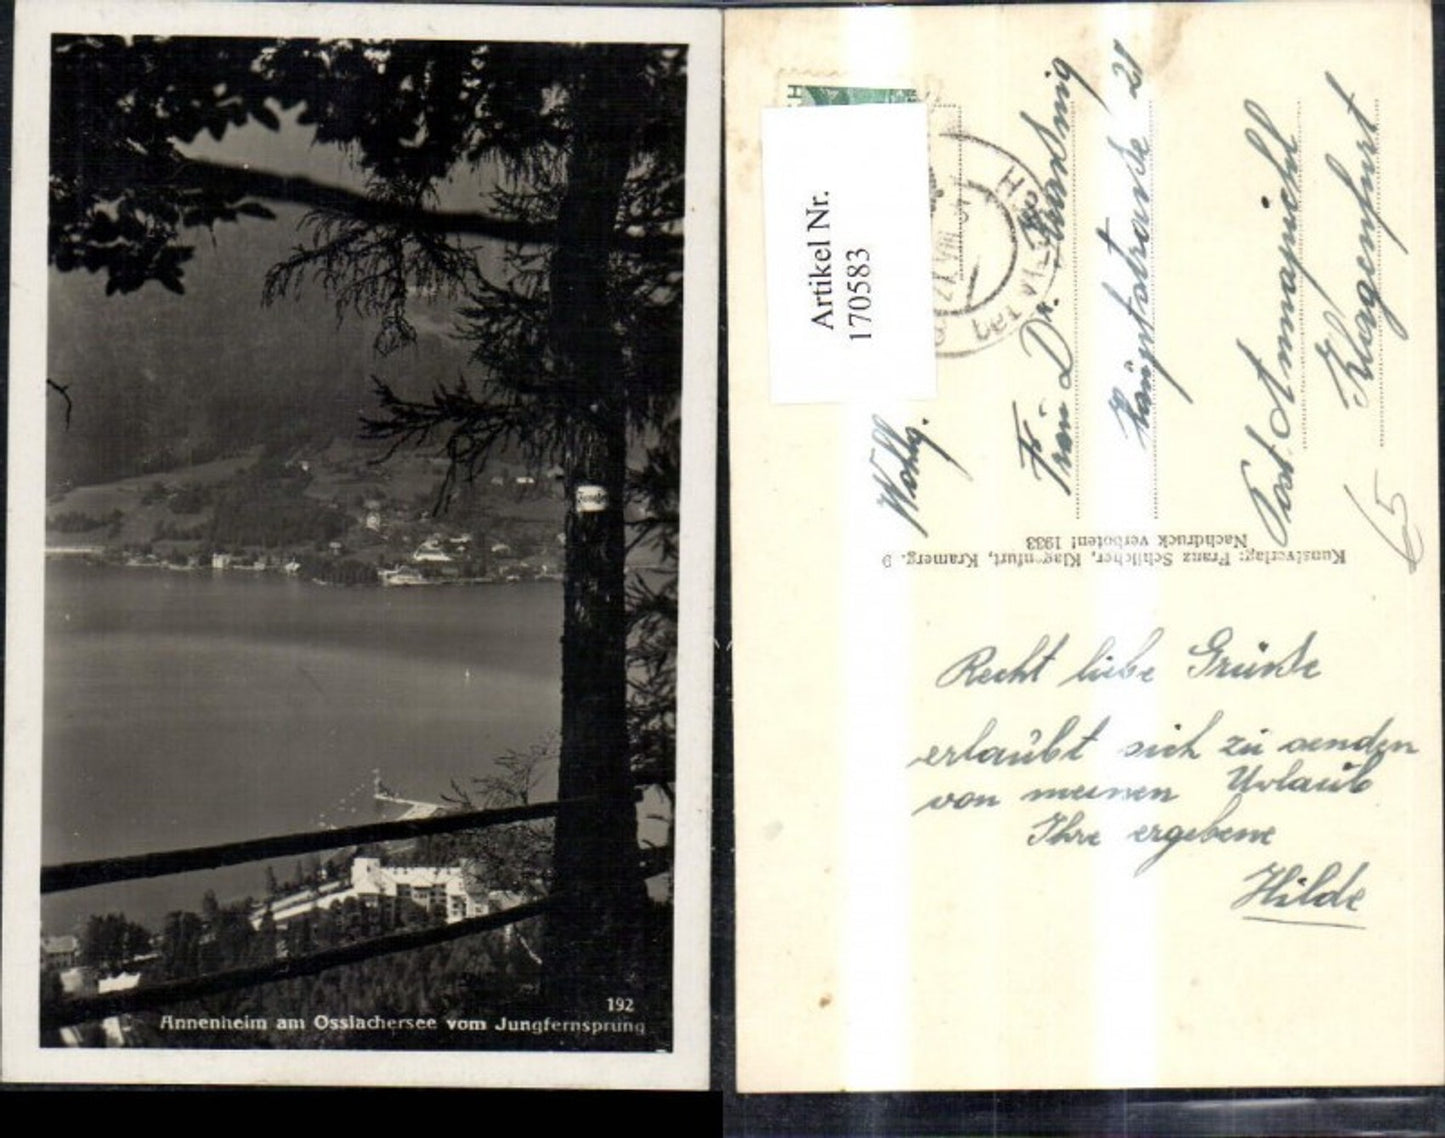 192
Annenheim am Ossiachersee vom Jungfernsprung
Artikel Nr.
170583
Wohlg.
Frau Dr.
21
Klagenfurt
65
Kunstverlag: Franz Schilcher, Klagenfurt, Kramerg. 9
Nachdruck verboten! 1933
Recht liebe Grüsse
erlaubt sich zu senden
von meinen Urlaub
Ihre ergebene
Hilde